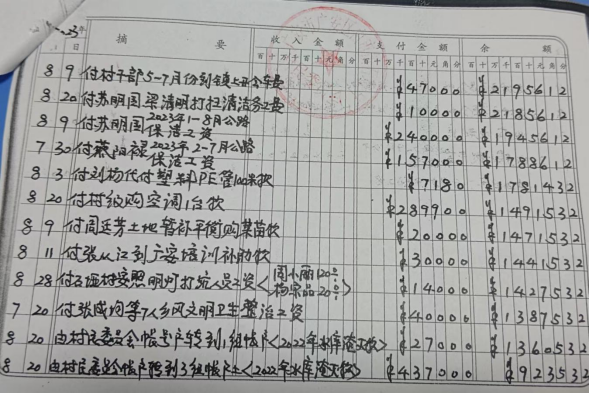 23年
摘要 收入金额 支付金额 余额
月 日 百十万千百十元角分 百十万千百十元角分 百十万千百十元角分
8 9 付村干部5-7月份到镇上公车费 ¥47000 ¥2195612
8 20 付苏明国梁清明打扫清洁务工费 ¥10000 ¥2185612
8 9 付苏明国2023年1-8月公路保洁工资 ¥240000 ¥1945612
7 30 付蔡阳禄2023年2-7月公路保洁工资 ¥157000 ¥1788612
8 3 付刘均代付塑料PE管100米款 ¥7180 ¥1781432
8 20 付村级购空调1台款 ¥289900 ¥1491532
8 9 付周廷芳土地暂补平衡购菜苗款 ¥20000 ¥1471532
8 11 付张从江到广安培训补助款 ¥30000 ¥1441532
8 28 付村安照明灯打坑人员工资<周小丽120元 杨 品20元> ¥14000 ¥1427532
7 20 付张成均等7人乡风文明卫生整治工资 ¥40000 ¥1387532
8 20 由村民委员会帐号户转到1组帐户<2022年水库淹没款> ¥27000 ¥1360532
8 20 由村民委会帐户转到3组帐户上<2022年水库淹没款> ¥437000 ¥923532